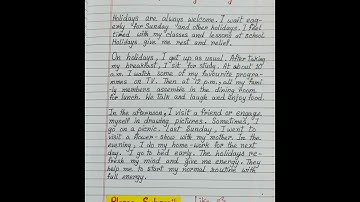 Holidays are always welcome. I wait eag-
erly for Sunday and other holidays. I feel
tired with my classes and lessons at school.
Holidays give me rest and relief.
On holidays, I get up as usual. After taking
my breakfast, I sit for study. At about 10
a.m. I watch some of my favourite progra-
mmes on TV. Then at 12 a.m, all my fami-
ly members assemble in the dining room
for lunch. We talk and laugh and enjoy food.
In the afternoon, I visit a friend or engage
myself in drawing pictures. Sometimes, I
go on a picnic. Last Sunday, I went to
visit a flower-show with my mother. In the
evening, I do my home-work for the next
day. I go to bed early. The holidays re-
fresh my mind and give me energy. They
help me to start my normal routine with
full energy.
Please